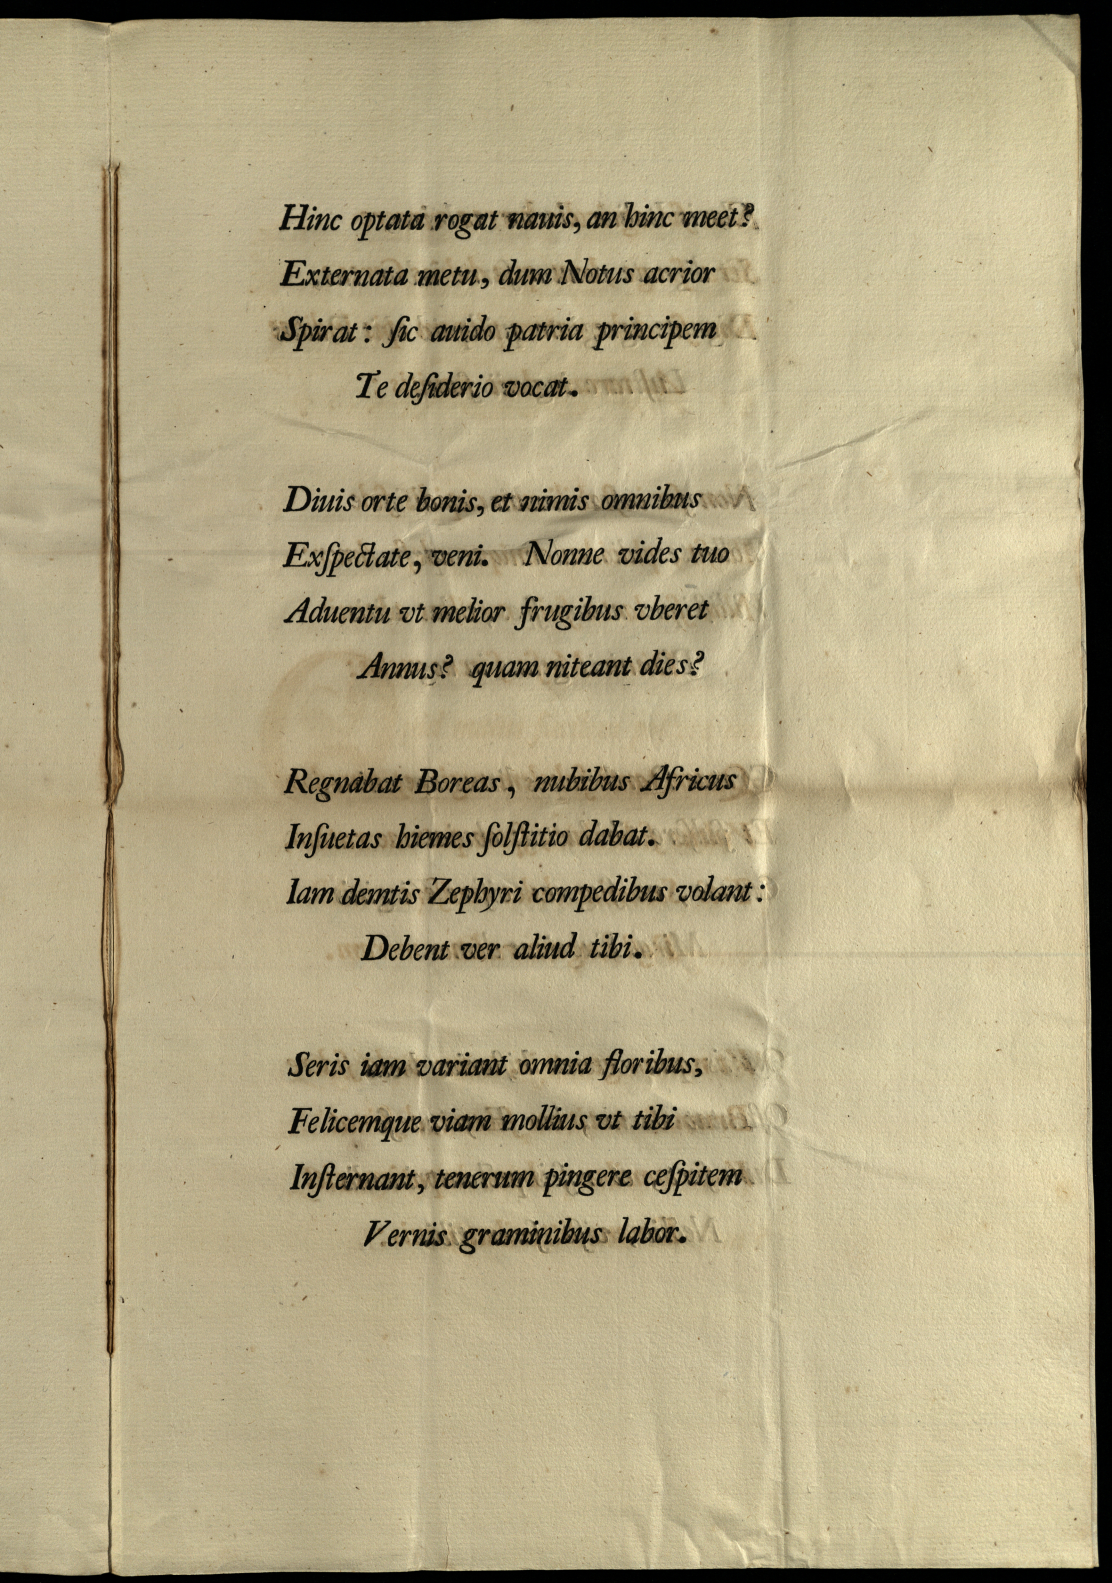 Hinc optata rogat nauis, an hinc meet?
Externata metu, dum Notus acrior
Spirat: ſic auido patria principem
Te deſiderio vocat.

Diuis orte bonis, et nimis omnibus
Exſpectate, veni. Nonne vides tuo
Aduentu vt melior frugibus vberet
Annus? quam niteant dies?

Regnabat Boreas, nubibus Africus
Inſuetas hiemes ſolſtitio dabat.
Iam demtis Zephyri compedibus volant:
Debent ver aliud tibi.

Seris iam variant omnia floribus,
Felicemque viam mollius vt tibi
Inſternant, tenerum pingere ceſpitem
Vernis graminibus labor.